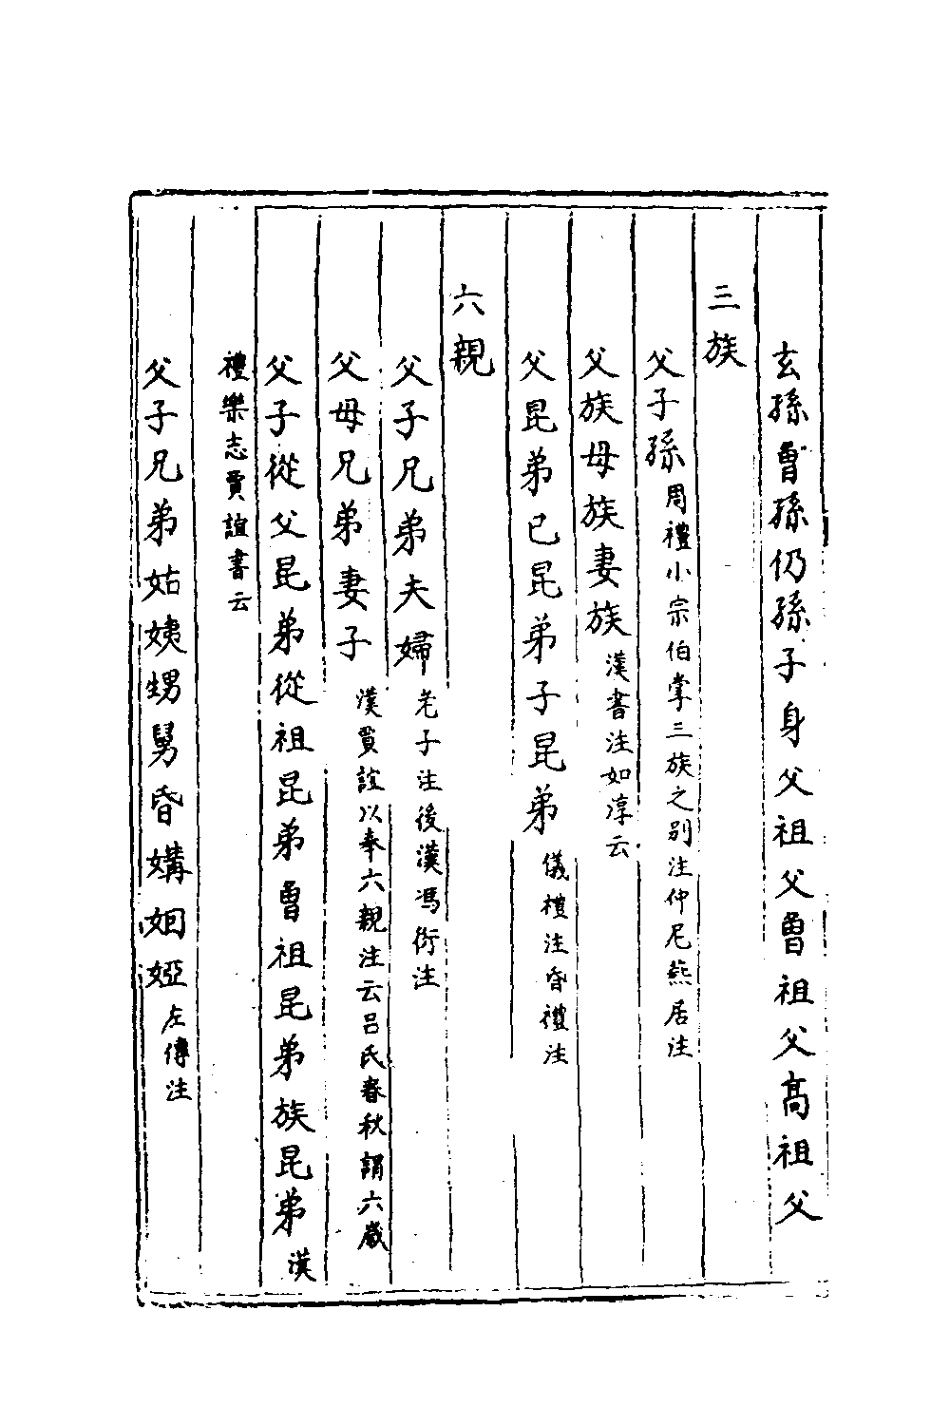 玄孫曾孫仍孫子身父祖父曾祖父高祖父
三族
父子孫周禮小宗伯掌三族之别注仲尼燕居注
父族母族妻族漢書注如淳云
父昆弟己昆弟子昆弟儀禮注昏禮注
六親
父子兄弟夫婦老子注後漢馮衍注
父母兄弟妻子漢賈誼以奉六親注云吕氏春秋謂六戚
父子從父昆弟從祖昆弟曾祖昆弟族昆弟漢
禮樂志賈誼書云
父子兄弟姑姨甥舅昏媾姻婭左傳注